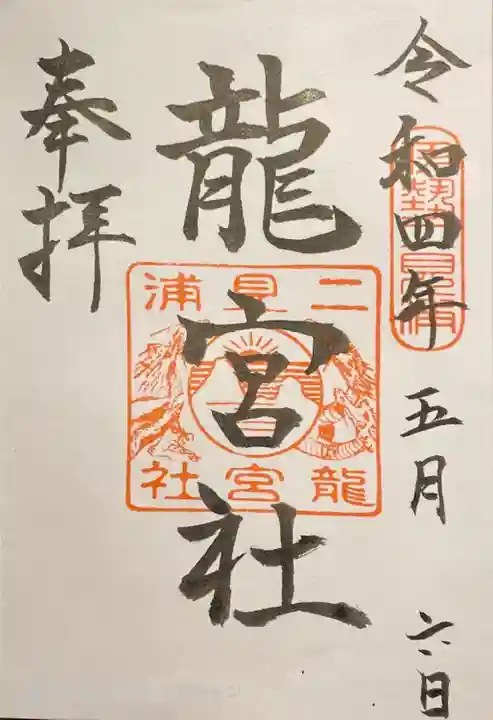 令和四年 五月 六日
龍宮社
奉拝
二見浦
龍宮社